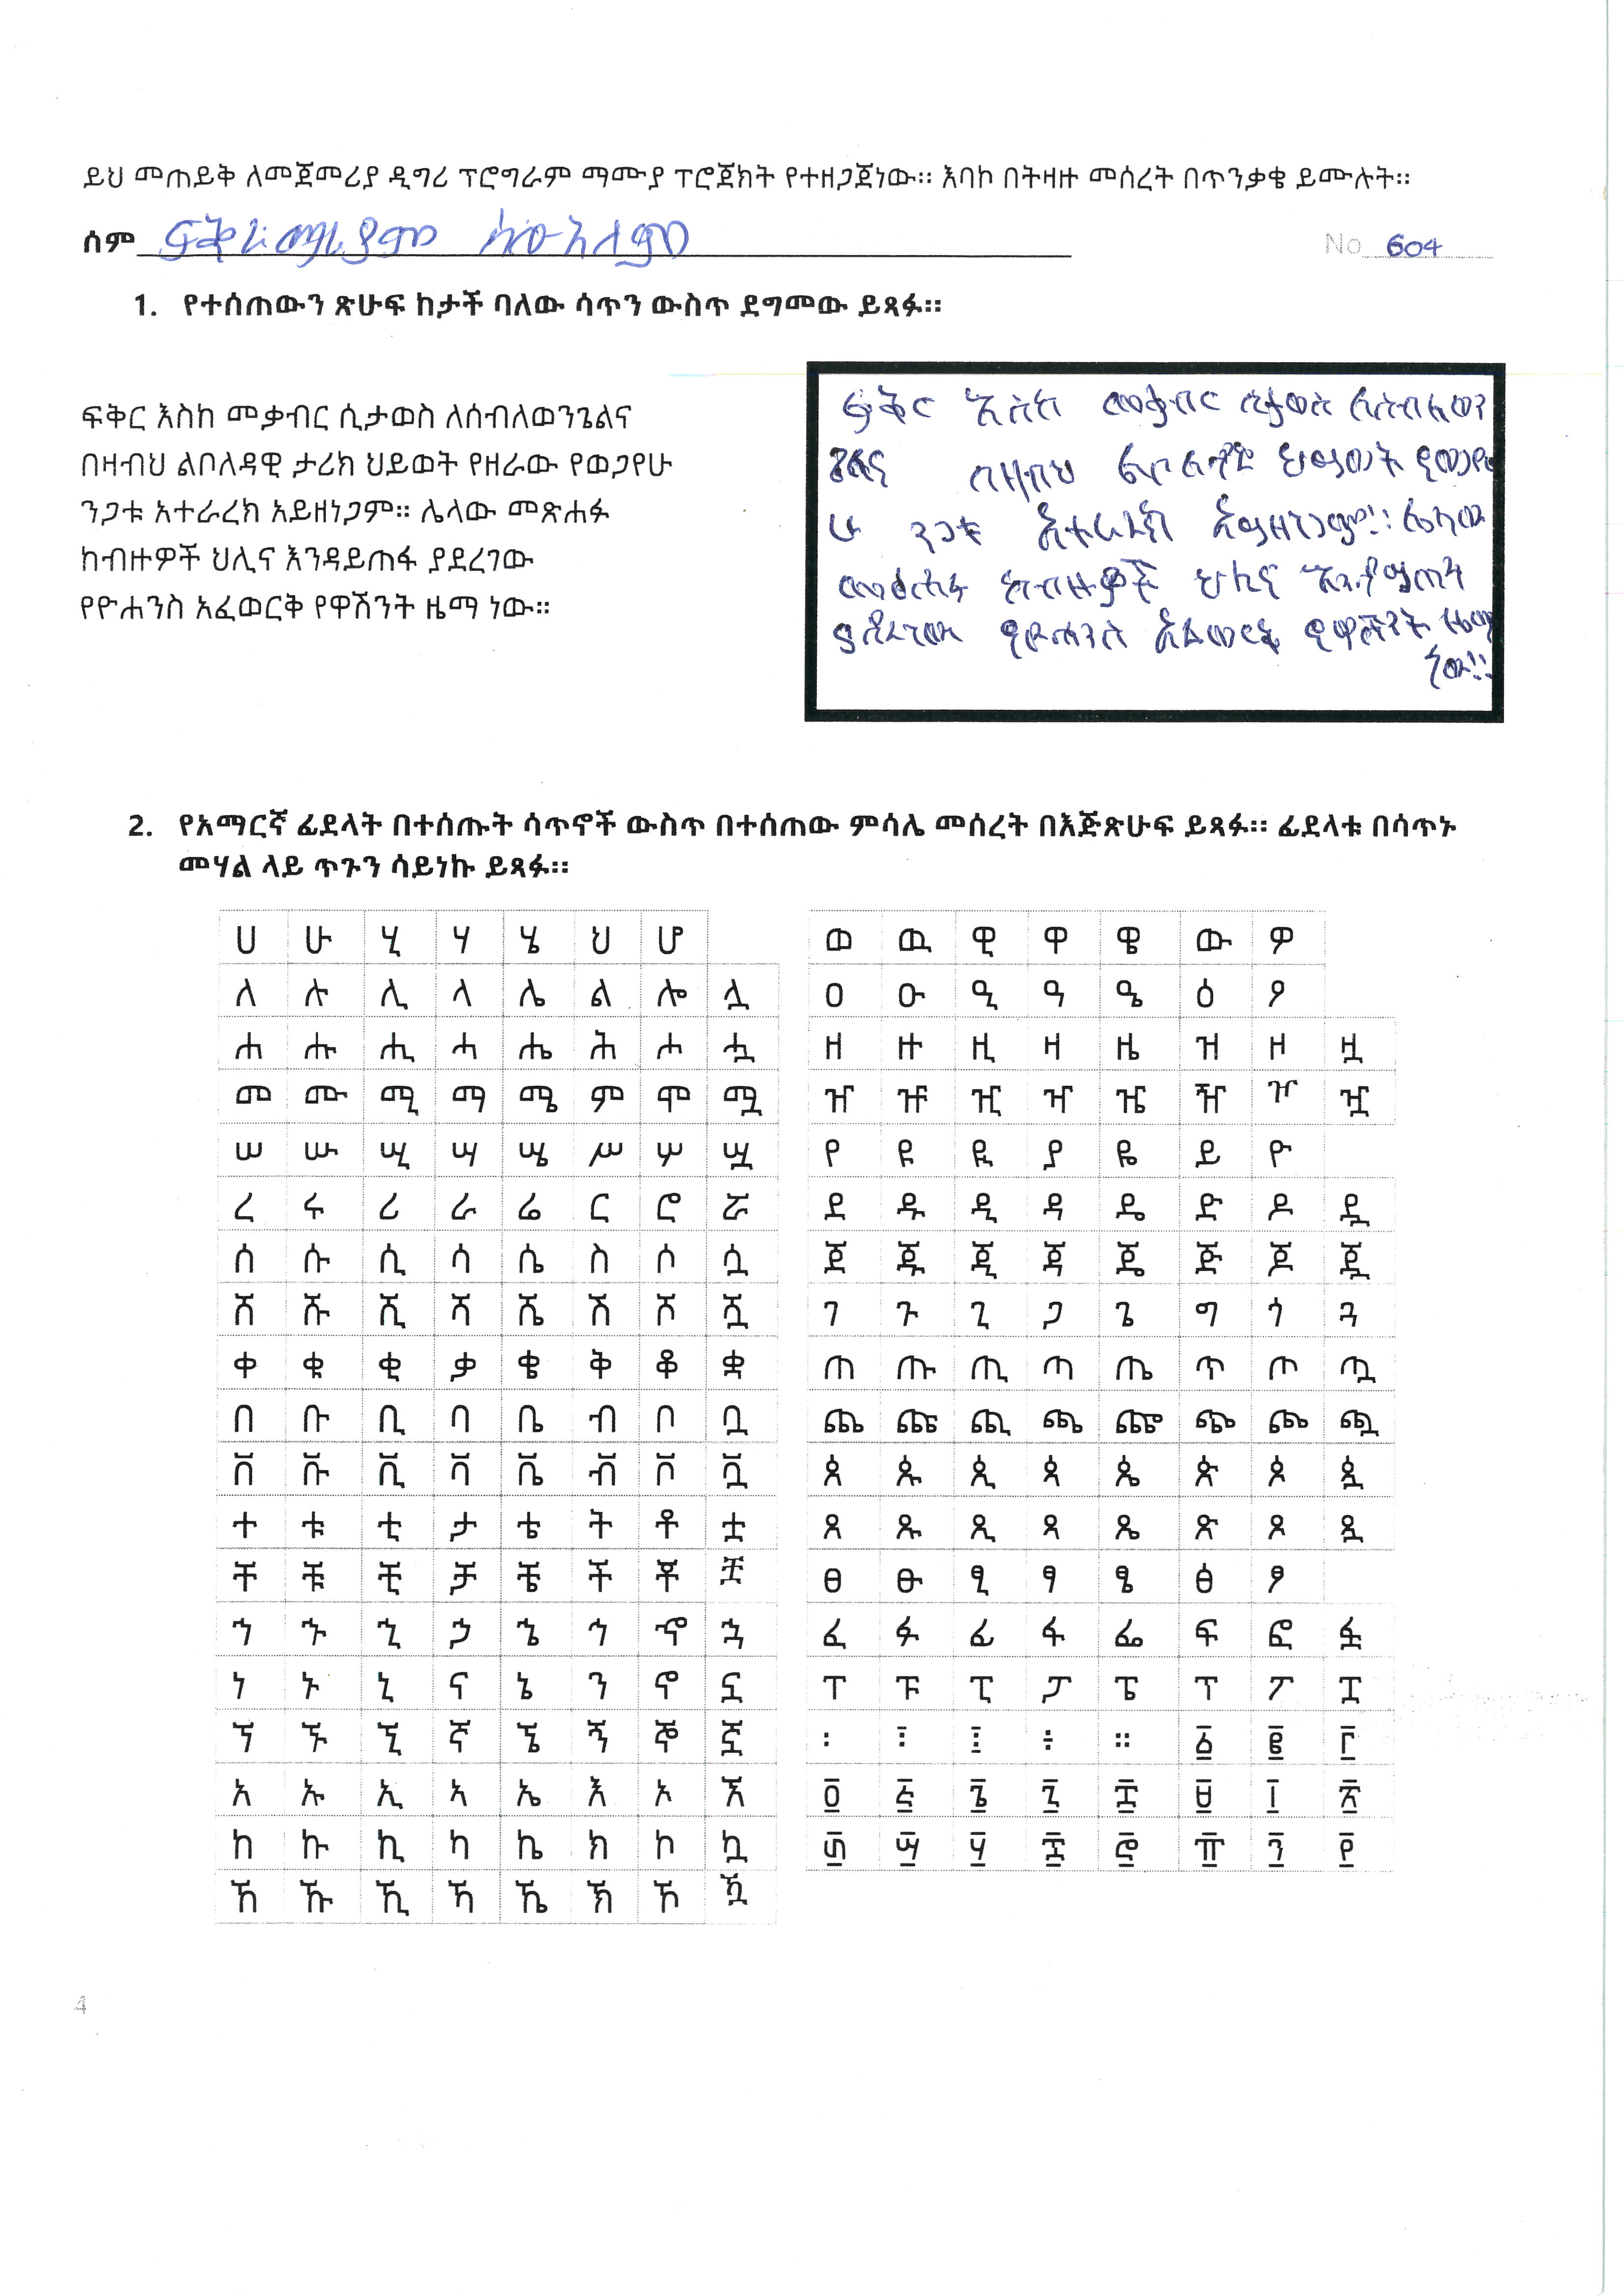 ይህ መጠይቅ ለመጀመሪያ ዲግሪ ፕሮግራም ማሙያ ፕሮጀክት የተዘጋጀነው። እባኮ በትዛዙ መሰረት በጥንቃቄ ይሙሉት።
ሰም ፍቅረማሪያም
No 604
1. የተሰጠውን ጽሁፍ ከታች ባለው ሳጥን ውስጥ ደግመው ይጻፉ።
ፍቅር እስከ መቃብር ሲታወስ ለሰብለወንጌልና
በዛብህ ልቦለዳዊ ታሪክ ህይወት የዘራው የወጋየሁ
ንጋቱ አተራረክ አይዘነጋም። ሌላው መጽሐፉ
ከብዙዎች ህሊና እንዳይጠፋ ያደረገው
የዮሐንስ አፈወርቅ የዋሽንት ዜማ ነው።
ፍቅር እስከ መቃብር ሲታወስ ለሰብለወን
ጌልና በዛብህ ልቦለዳዊ ህይወት የወጋየ
ሁ ንጋቱ አተራረክ አይዘነጋም። ሌላው
መፅሐፉ ከብዙዎች ህሊና እንዳይጠፋ
ያደረገው የዮሐንስ አፈወርቅ የዋሽንት ዜማ
ነው።
2. የአማርኛ ፊደላት በተሰጡት ሳጥኖች ውስጥ በተሰጠው ምሳሌ መሰረት በእጅጽሁፍ ይጻፉ። ፊደላቱ በሳጥኑ
መሃል ላይ ጥጉን ሳይነኩ ይጻፉ።
ሀ ሁ ሂ ሃ ሄ ህ ሆ
ለ ሉ ሊ ላ ሌ ል ሎ ሏ
ሐ ሑ ሒ ሓ ሔ ሕ ሖ ሗ
መ ሙ ሚ ማ ሜ ም ሞ ሟ
ሠ ሡ ሢ ሣ ሤ ሥ ሦ ሧ
ረ ሩ ሪ ራ ሬ ር ሮ ሯ
ሰ ሱ ሲ ሳ ሴ ስ ሶ ሷ
ሸ ሹ ሺ ሻ ሼ ሽ ሾ ሿ
ቀ ቁ ቂ ቃ ቄ ቅ ቆ ቋ
በ ቡ ቢ ባ ቤ ብ ቦ ቧ
ቨ ቩ ቪ ቫ ቬ ቭ ቮ ቯ
ተ ቱ ቲ ታ ቴ ት ቶ ቷ
ቸ ቹ ቺ ቻ ቼ ች ቾ ቿ
ኀ ኁ ኂ ኃ ኄ ኅ ኆ ኋ
ነ ኑ ኒ ና ኔ ን ኖ ኗ
ኘ ኙ ኚ ኛ ኜ ኝ ኞ ኟ
አ ኡ ኢ ኣ ኤ እ ኦ ኧ
ከ ኩ ኪ ካ ኬ ክ ኮ ኳ
ኸ ኹ ኺ ኻ ኼ ኽ ኾ ዃ
ወ ዉ ዊ ዋ ዌ ው ዎ
ዐ ዑ ዒ ዓ ዔ ዕ ዖ
ዘ ዙ ዚ ዛ ዜ ዝ ዞ ዟ
ዠ ዡ ዢ ዣ ዤ ዥ ዦ ዧ
የ ዩ ዪ ያ ዬ ይ ዮ
ደ ዱ ዲ ዳ ዴ ድ ዶ ዷ
ጀ ጁ ጂ ጃ ጄ ጅ ጆ ጇ
ገ ጉ ጊ ጋ ጌ ግ ጎ ጓ
ጠ ጡ ጢ ጣ ጤ ጥ ጦ ጧ
ጨ ጩ ጪ ጫ ጬ ጭ ጮ ጯ
ጰ ጱ ጲ ጳ ጴ ጵ ጶ ጷ
ጸ ጹ ጺ ጻ ጼ ጽ ጾ ጿ
ፀ ፁ ፂ ፃ ፄ ፅ ፆ
ፈ ፉ ፊ ፋ ፌ ፍ ፎ ፏ
ፐ ፑ ፒ ፓ ፔ ፕ ፖ ፗ
፡ ፣ ፤ ፥ ። ፩ ፪ ፫
፬ ፭ ፮ ፯ ፰ ፱ ፲ ፳
፴ ፵ ፶ ፷ ፸ ፹ ፺ ፻
4